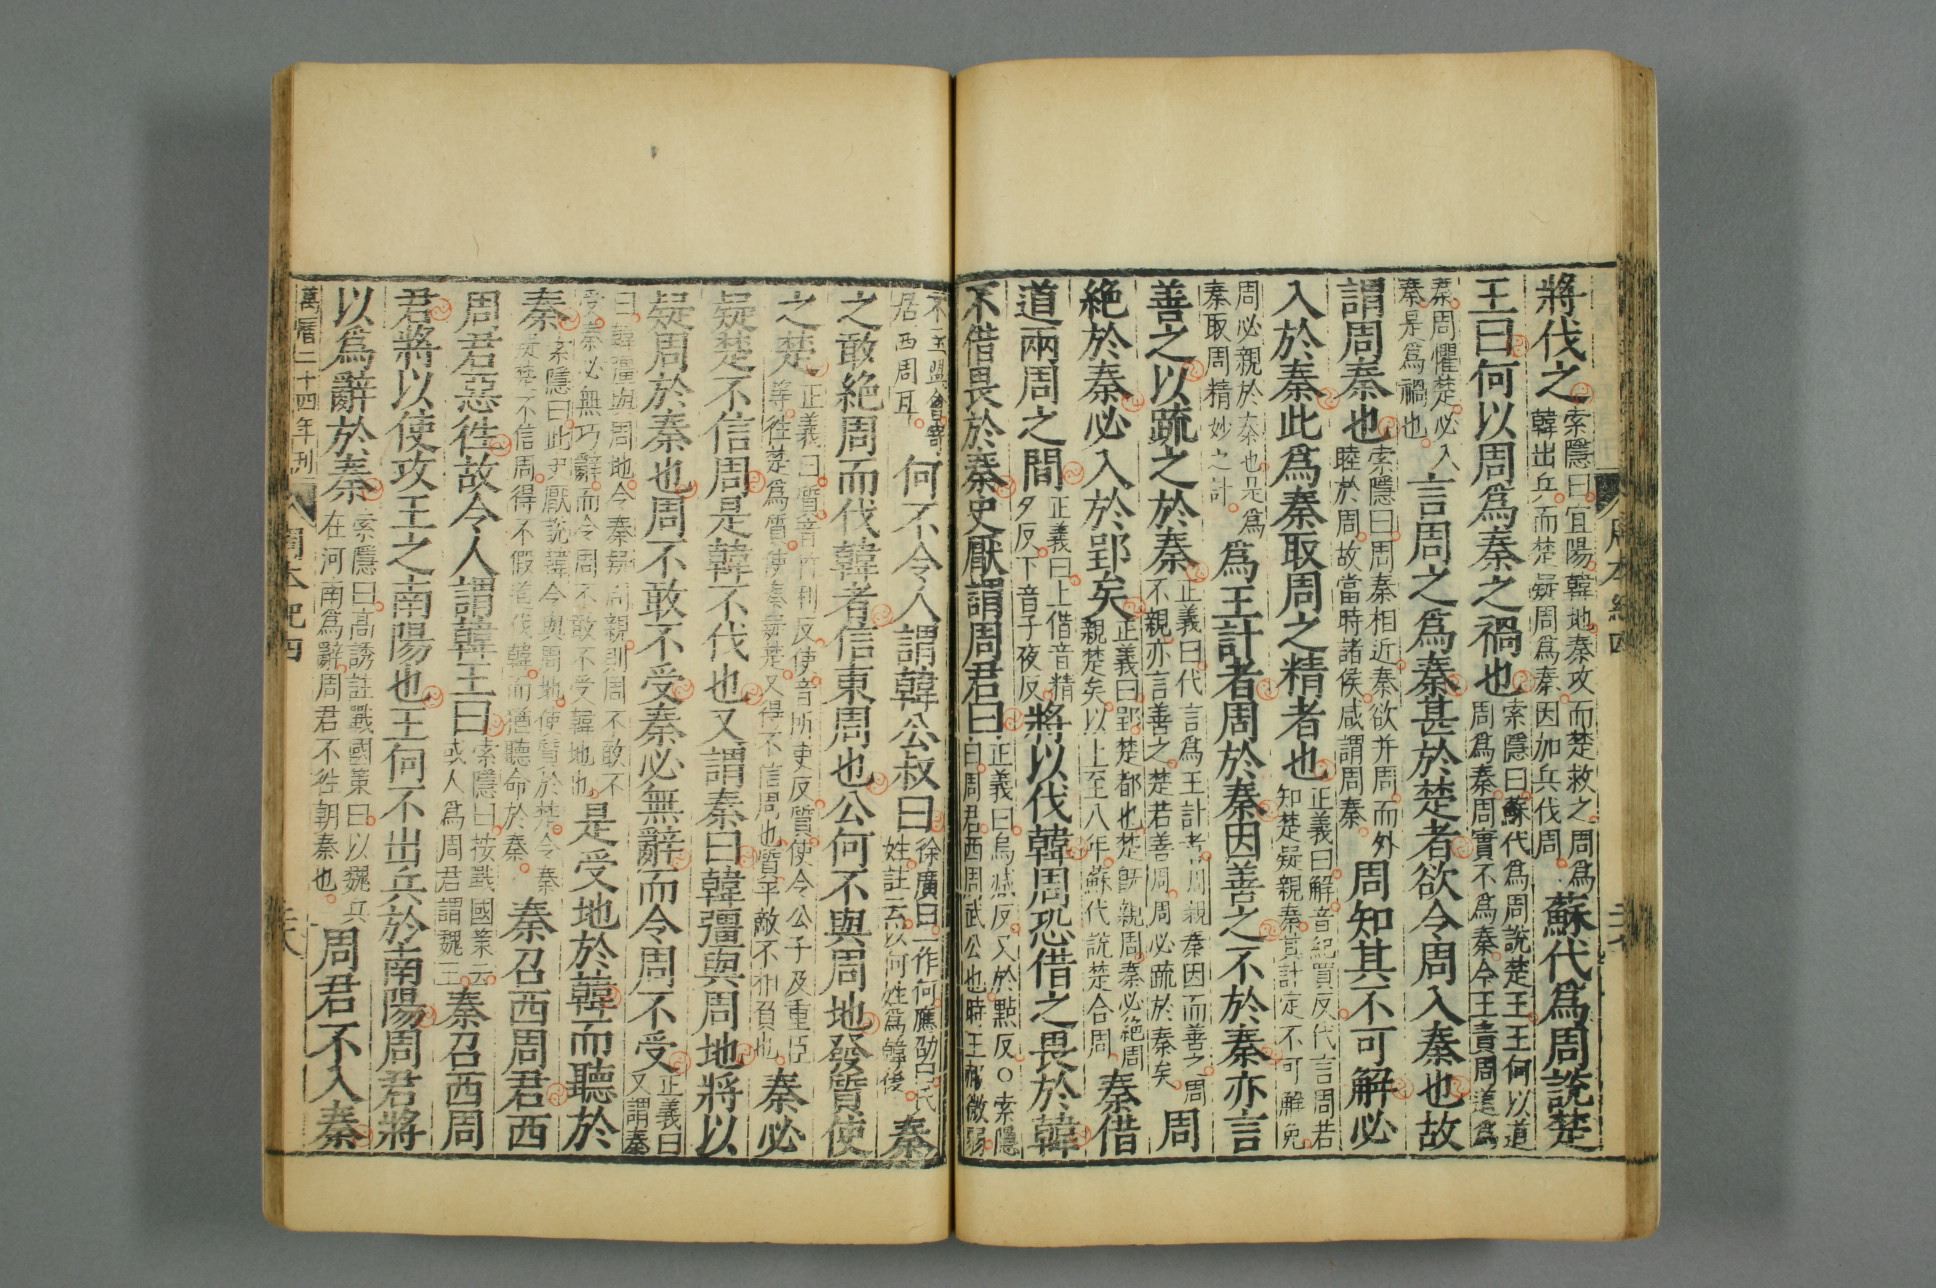 將伐之索隱曰宜陽韓地秦攻而楚救之周爲韓出兵而楚疑周爲秦因加兵伐周蘇代爲周說楚
王曰何以周爲秦之禍也索隱曰蘇代爲周說楚王王何以道周爲秦周實不爲秦今王責周道爲
秦周懼楚必入秦是爲禍也言周之爲秦甚於楚者欲令周入秦也故
謂周秦也索隱曰周秦相近秦欲并周而外睦於周故當時諸侯咸謂周秦周知其不可解必
入於秦此爲秦取周之精者也正義曰解音紀買反代言周若知楚疑親秦其計定不可解免
周必親於秦也是爲秦取周精妙之計爲王計者周於秦因善之不於秦亦言
善之以疏之於秦正義曰代言爲王計者周親秦因而善之周不親亦言善之楚若善周周必疏於秦矣周
絶於秦必入於郢矣正義曰郢楚都也楚旣親周秦必絶周親楚矣以上至八年蘇代說楚合周秦借
道兩周之間正義曰上借音精夕反下音子夜反將以伐韓周恐借之畏於韓
不借畏於秦史厭謂周君曰正義曰烏減反又於點反○索隱曰周君西周武公也時王赧微弱
不主盟會寄居西周耳何不令人謂韓公叔曰徐廣曰一作何應劭曰氏姓註云以何姓爲韓後秦
之敢絶周而伐韓者信東周也公何不與周地發質使
之楚正義曰質音竹利反使音所吏反質使令公子及重臣等往楚爲質使秦疑楚又得不信周也質平敵不相負也秦必
疑楚不信周是韓不伐也又謂秦曰韓彊與周地將以
疑周於秦也周不敢不受秦必無辭而令周不受正義曰又謂秦
曰韓彊與周地令秦疑周親則周不敢不受秦必無巧辭而令周不敢不受韓地也是受地於韓而聽於
秦索隱曰此史厭說韓令與周地使質於楚令秦疑楚不信周得不假道伐韓而猶聽命於秦秦召西周君西
周君惡徃故令人謂韓王曰索隱曰按戰國策云或人爲周君謂魏王秦召西周
君將以使攻王之南陽也王何不出兵於南陽周君將
以爲辭於秦索隱曰高誘註戰國策曰以魏兵在河南爲辭周君不徃朝秦也周君不入秦
萬曆二十四年刊
周本紀四